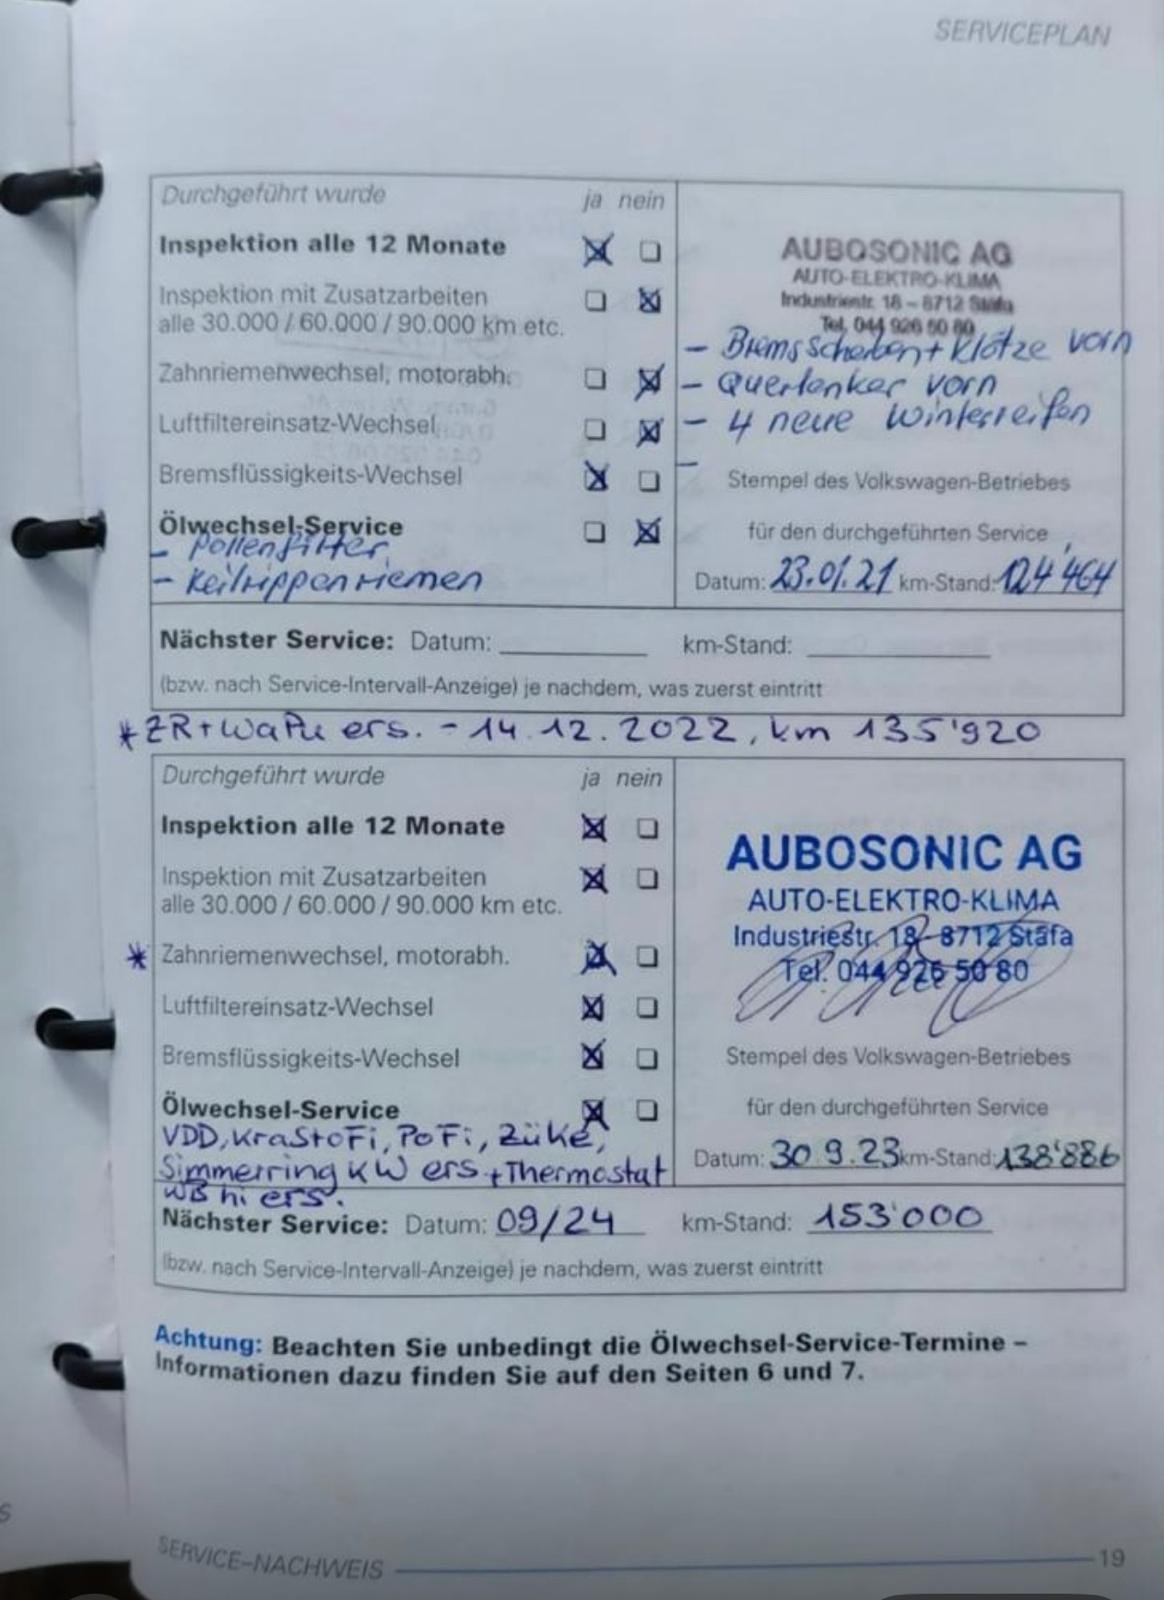 SERVICEPLAN
Durchgeführt wurde ja nein
Inspektion alle 12 Monate
Inspektion mit Zusatzarbeiten
alle 30.000 / 60.000 / 90.000 km etc.
Zahnriemenwechsel, motorabh.
Luftfiltereinsatz-Wechsel
Bremsflüssigkeits-Wechsel
Ölwechsel-Service
- Pollenfilter
- Keilrippenriemen
AUBOSONIC AG
AUTO-ELEKTRO-KLIMA
Industriestr. 18 – 8712 Stäfa
Tel. 044 926 50 80
- Bremsscheiben + Klötze vorn
- Querlenker vorn
- 4 neue Winterreifen
-
Stempel des Volkswagen-Betriebes
für den durchgeführten Service
Datum: 23.01.21 km-Stand: 124'464
Nächster Service: Datum: km-Stand:
(bzw. nach Service-Intervall-Anzeige) je nachdem, was zuerst eintritt
* ZR + WaPu ers. - 14.12.2022, km 135'920
Durchgeführt wurde ja nein
Inspektion alle 12 Monate
Inspektion mit Zusatzarbeiten
alle 30.000 / 60.000 / 90.000 km etc.
* Zahnriemenwechsel, motorabh.
Luftfiltereinsatz-Wechsel
Bremsflüssigkeits-Wechsel
Ölwechsel-Service
VDD, KraStoFi, PoFi, Züke,
Simmerring KW ers + Thermostat
WB hi ers.
AUBOSONIC AG
AUTO-ELEKTRO-KLIMA
Industriestr. 18 - 8712 Stäfa
Tel. 044 926 50 80
Stempel des Volkswagen-Betriebes
für den durchgeführten Service
Datum: 30.9.23 km-Stand: 138'886
Nächster Service: Datum: 09/24 km-Stand: 153'000
(bzw. nach Service-Intervall-Anzeige) je nachdem, was zuerst eintritt
Achtung: Beachten Sie unbedingt die Ölwechsel-Service-Termine –
Informationen dazu finden Sie auf den Seiten 6 und 7.
S
SERVICE–NACHWEIS 19